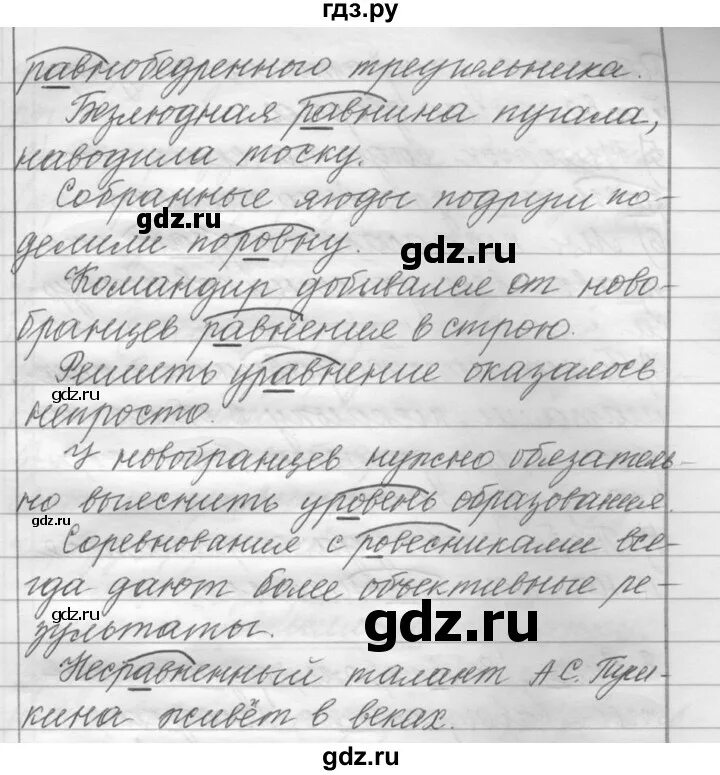 гдз.ру
равнобедренного треугольника.
Безлюдная равнина пугала,
наводила тоску.
Собранные ягоды подруги по-
gdz.ru
делили поровну.
gdz.ru
Командир добивался от ново-
бранцев равнения в строю.
Решить уравнение оказалось
gdz.ru
непросто.
У новобранцев нужно обязатель-
но выяснить уровень образования.
gdz.ru
Соревнования с ровесниками все-
гда дают более объективные ре-
gdz.ru
зультаты.
gdz.ru
Несравненный талант А.С. Пуш-
кина живёт в веках.
gdz.ru